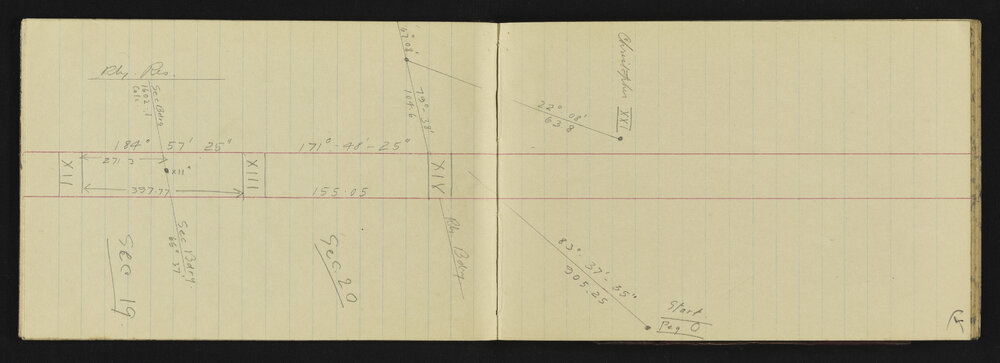 Rly. Res.
Sec Bdry
1602.1
Calc
184° 57' 25"
271.3
XII
XII°
337.77
XIII
Sec 19
Sec Bdry
66° 37'
171° - 48' - 25"
155.05
Sec 20
67° 08'
79° 38'
104.6
XIV
Rly Bdry
22° 08'
63.8
Christopher XXI
83° - 37' - 35"
905.25
Start
Peg O